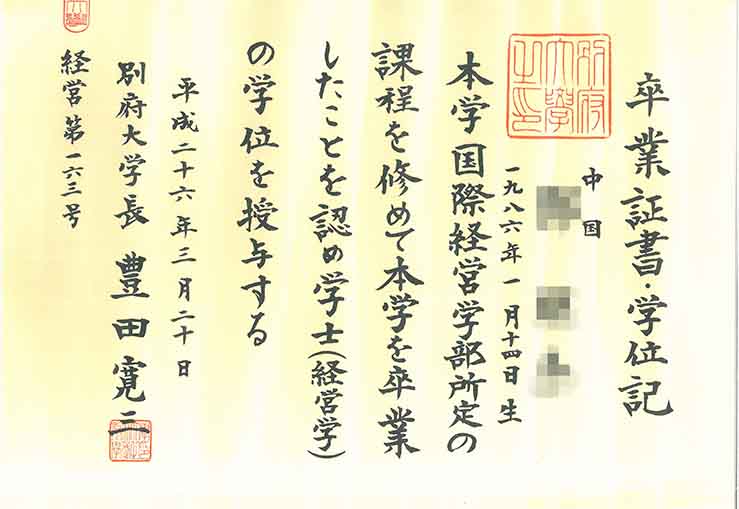 卒業証書・学位記
中国
一九八六年一月十四日生
本学国際経営学部所定の
課程を修めて本学を卒業
したことを認め学士(経営学)
の学位を授与する
平成二十六年三月二十日
別府大学長 豊田寛三
経営第一六三号
別府大学之印